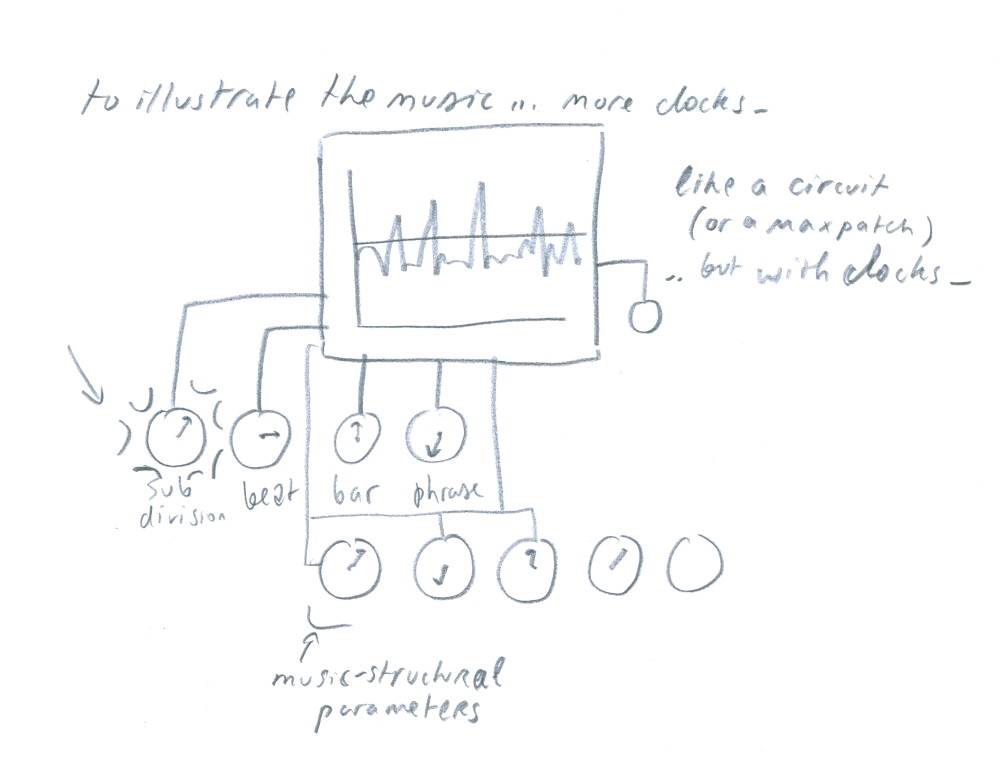 to illustrate the music ... more clocks_
like a circuit
(or a maxpatch)
.. but with clocks_
sub
division
beat
bar
phrase
music-structural
parameters